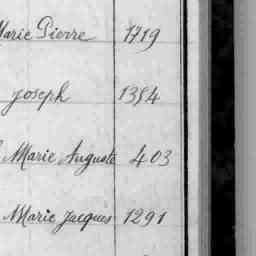 Marie Pierre 1719
Joseph 1384
Marie Auguste 403
Marie Jacques 1291